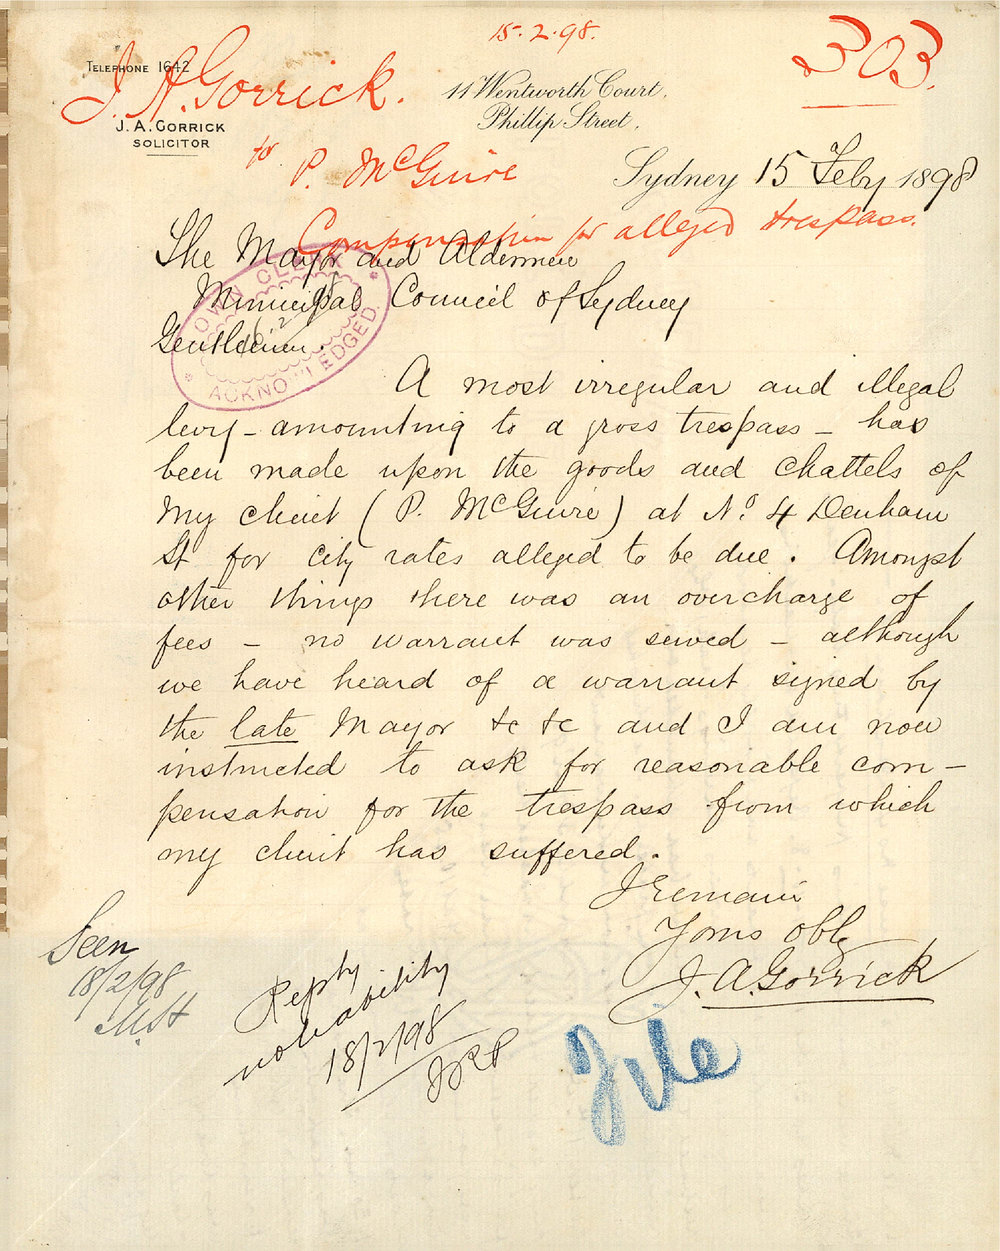 15.2.98.
303.
TELEPHONE 1642
J. A. Gorrick.
11 Wentworth Court,
Phillip Street,
J. A. GORRICK
SOLICITOR
for
P. McGuire
Sydney 15 Feby 1898
Compensation for alleged trespass.
The Mayor and Aldermen
Municipal Council of Sydney
Gentlemen.
TOWN CLERK
16.2.98
ACKNOWLEDGED.
A most irregular and illegal
levy - amounting to a gross trespass - has
been made upon the goods and chattels of
my client (P. McGuire) at No. 4 Denham
St for city rates alleged to be due. Amongst
other things there was an overcharge of
fees - no warrant was served - although
we have heard of a warrant signed by
the late Mayor &c &c and I am now
instructed to ask for reasonable com-
pensation for the trespass from which
my client has suffered.
I remain
Yours obly
J. A. Gorrick
Seen
18/2/98
Reply
no liability
18/2/98
File